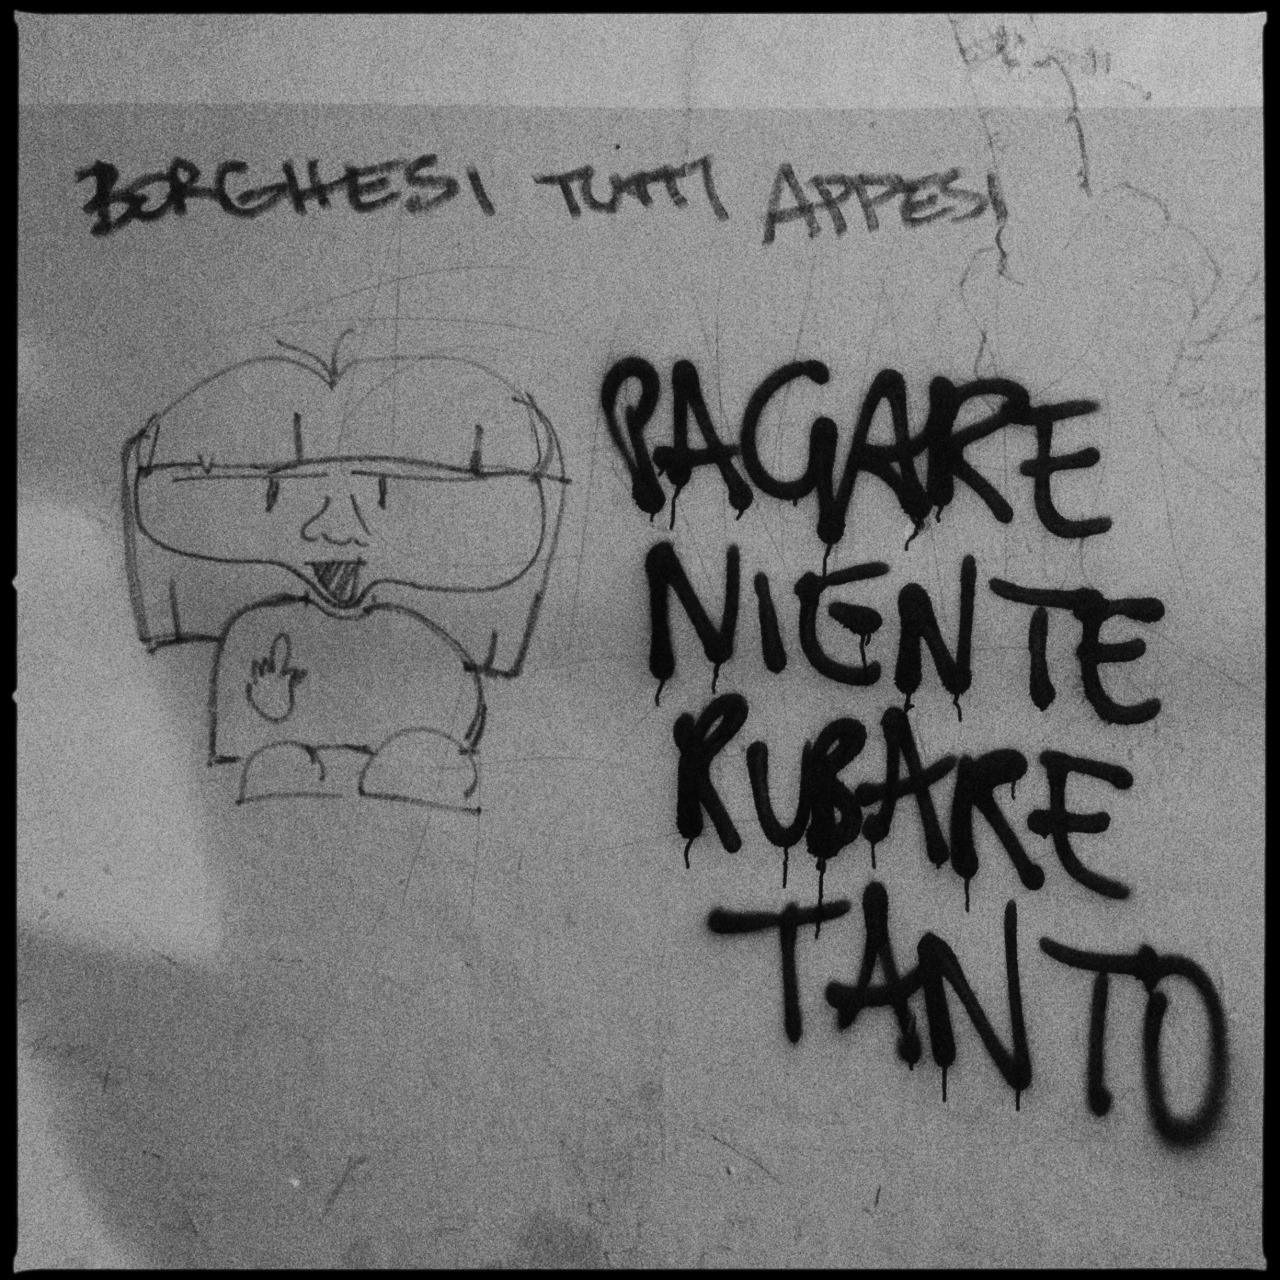 BORGHESI TUTTI APPESI
PAGARE
NIENTE
RUBARE
TANTO